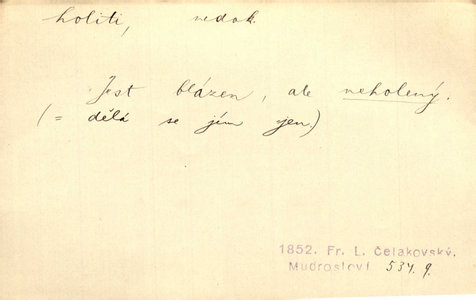 holiti, nedok.
Jest blázen, ale neholený.
(= dělá se jím jen.)
1852. Fr. L. Čelakovský,
Mudrosloví 534. 9.